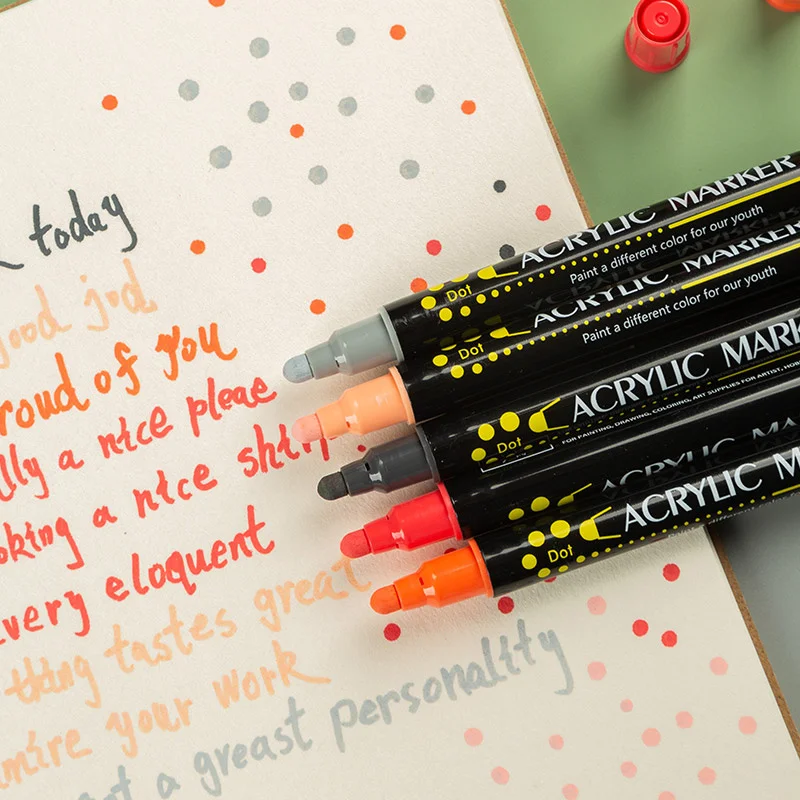 today
good jod
roud of you
lly a nice pleae
oking a nice shirt
very eloquent
thing tastes great
mire your work
a greast personality
ACRYLIC MARKER
Dot Paint a different color for our youth
ACRYLIC MARKER
Dot Paint a different color for our youth
ACRYLIC MARK
Dot FOR PAINTING, DRAWING, COLORING, ART SUPPLIES FOR ARTIST, HOB
ACRYLIC MA
ACRYLIC MA
Dot